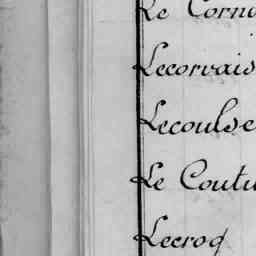 Le Corni
Lecorvais
Lecoulse
Le Coutu
Lecroq